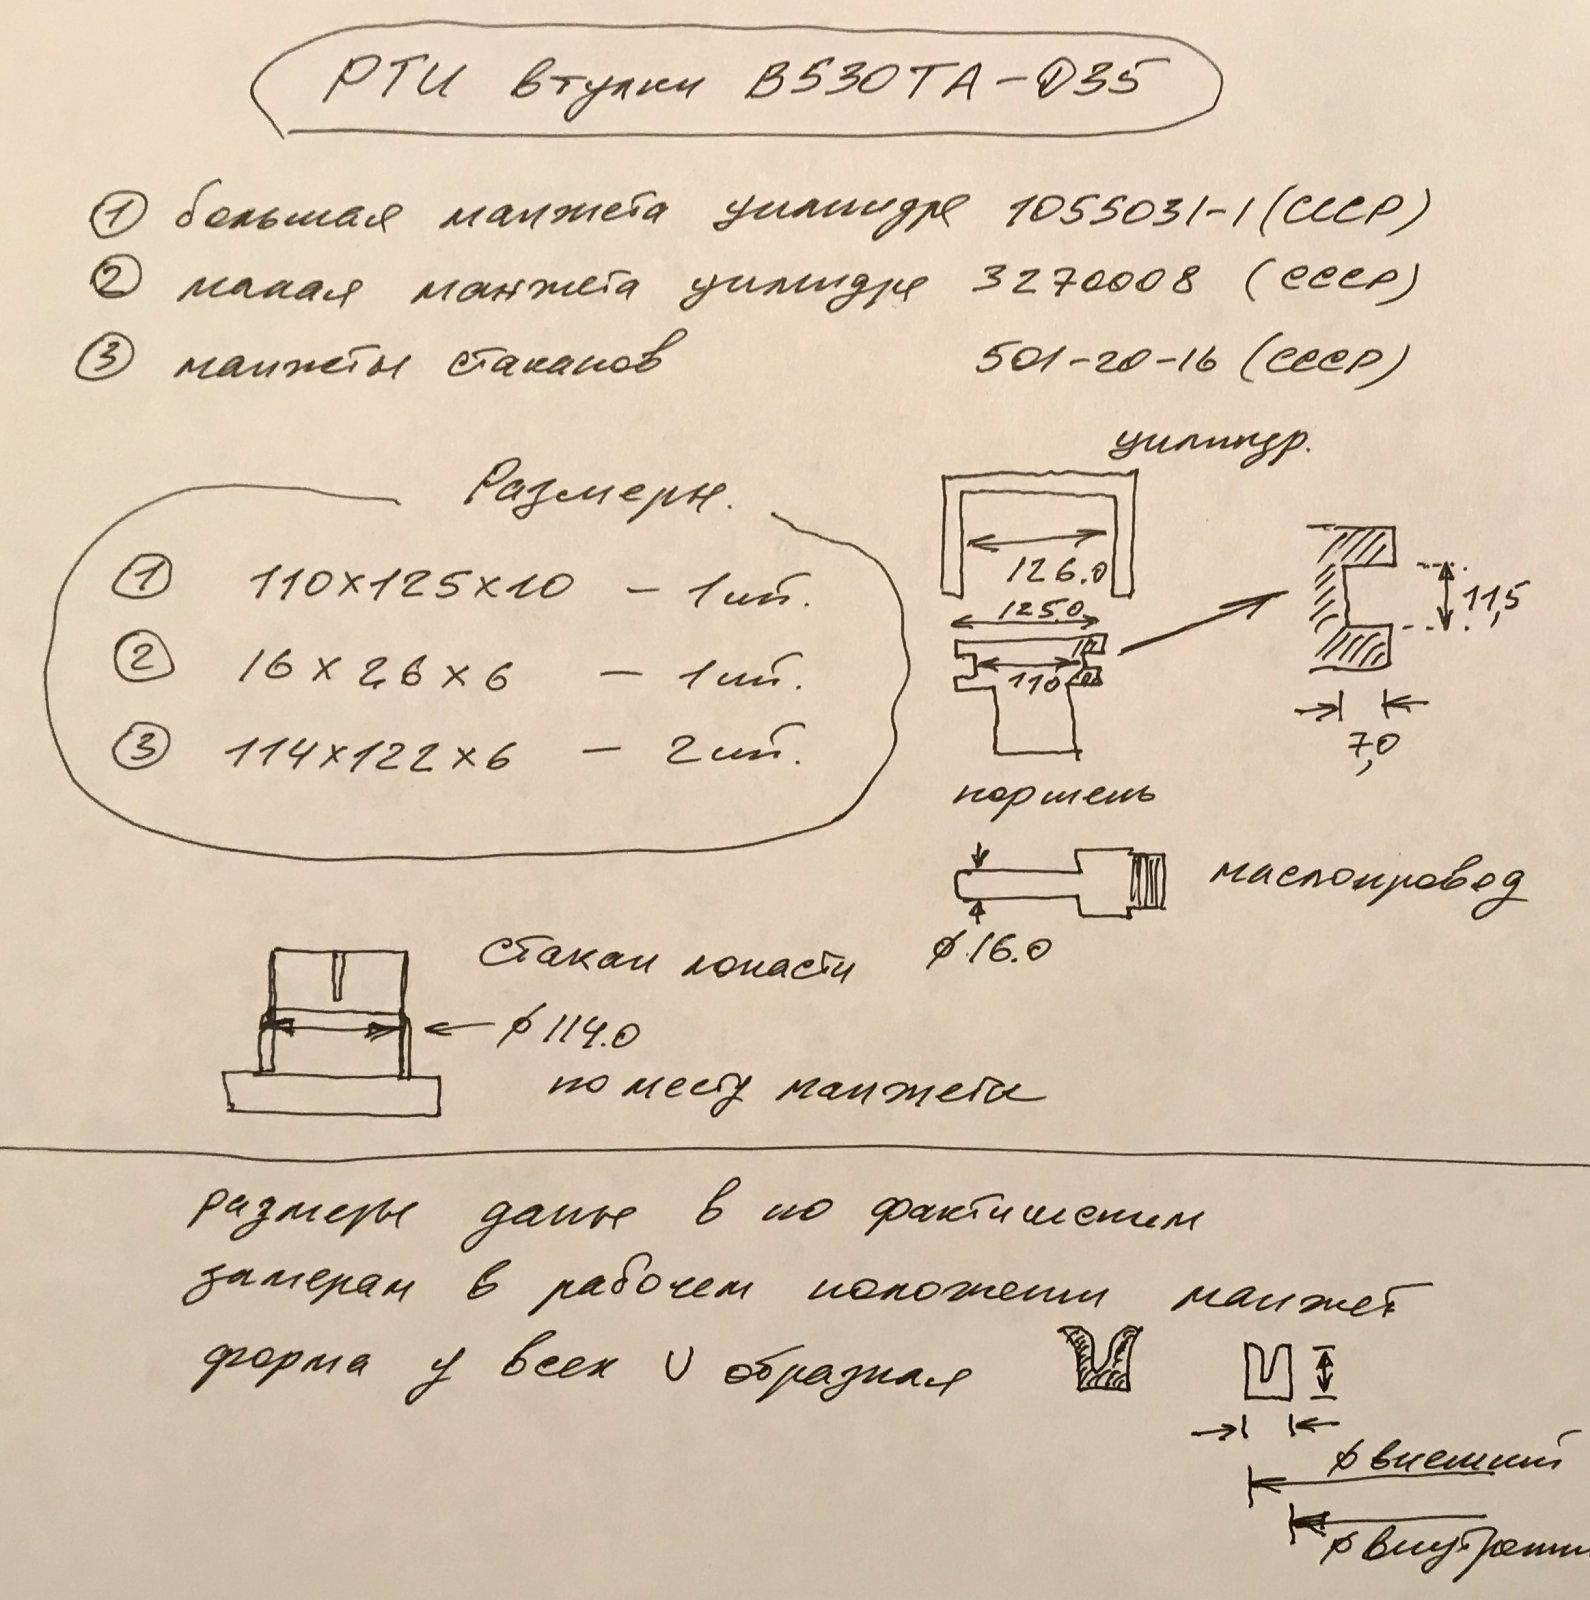 РТИ втулки В530ТА-Д35
① большая манжета цилиндра 1055031-1 (СССР)
② малая манжета цилиндра 3270008 (СССР)
③ манжеты стаканов 501-20-16 (СССР)
Размеры.
① 110х125х10 - 1шт.
② 16 х 26 х 6 - 1шт.
③ 114х122х6 - 2шт.
цилиндр.
126.0
125.0
110
11,5
7,0
поршень
маслопровод
ф 16.0
стакан лопасти
ф 114.0
по месту манжеты
размеры даны в по фактическим
замерам в рабочем положении манжет
форма у всех U образная
ф внешний
ф внутренни